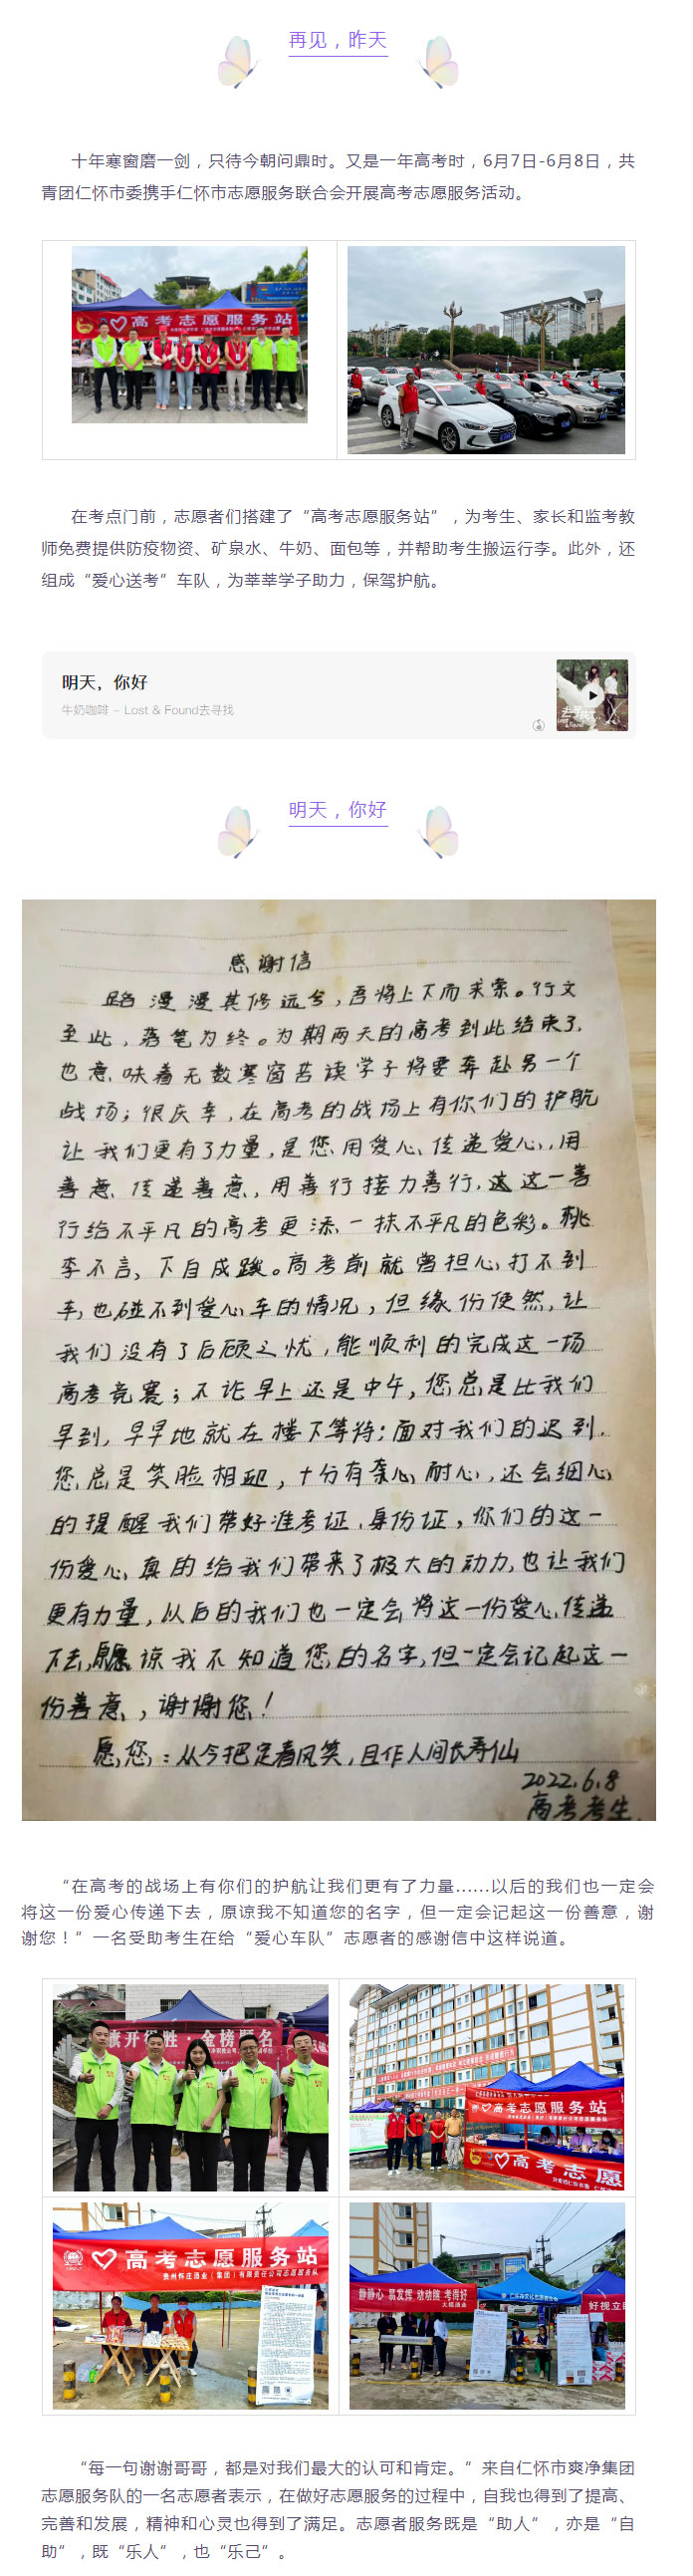 再见，昨天
十年寒窗磨一剑，只待今朝问鼎时。又是一年高考时，6月7日-6月8日，共
青团仁怀市委携手仁怀市志愿服务联合会开展高考志愿服务活动。
高考志愿服务站
在考点门前，志愿者们搭建了“高考志愿服务站”，为考生、家长和监考教
师免费提供防疫物资、矿泉水、牛奶、面包等，并帮助考生搬运行李。此外，还
组成“爱心送考”车队，为莘莘学子助力，保驾护航。
明天，你好
牛奶咖啡 – Lost & Found去寻找
明天，你好
感谢信
路漫漫其修远兮，吾将上下而求索。行文
至此，落笔为终。为期两天的高考到此结束了，
也意味着无数寒窗苦读学子将要奔赴另一个
战场；很庆幸，在高考的战场上有你们的护航
让我们更有了力量，是您用爱心传递爱心，用
善意传递善意，用善行接力善行，这一善
行给不平凡的高考更添一抹不平凡的色彩。桃
李不言，下自成蹊。高考前就曾担心打不到
车，也碰不到爱心车的情况，但缘份使然，让
我们没有了后顾之忧，能顺利的完成这一场
高考竞赛；不论早上还是中午，您总是比我们
早到，早早地就在楼下等待；面对我们的迟到，
您总是笑脸相迎，十份有亲心耐心，还会细心
的提醒我们带好准考证、身份证，你们的这一
份爱心真的给我们带来了极大的动力，也让我们
更有力量，从后的我们也一定会将这一份爱心传递
下去，原谅我不知道您的名字，但一定会记起这一
份善意，谢谢您！
愿您：从今把定春风笑，且作人间长寿仙
2022.6.8
高考考生
“在高考的战场上有你们的护航让我们更有了力量......以后的我们也一定会
将这一份爱心传递下去，原谅我不知道您的名字，但一定会记起这一份善意，谢
谢您！”一名受助考生在给“爱心车队”志愿者的感谢信中这样说道。
旗开得胜·金榜题名
高考志愿服务站
高考志愿
高考志愿服务站
贵州怀庄酒业（集团）有限责任公司志愿服务队
静静心 易发挥 动动脑 考得好
“每一句谢谢哥哥，都是对我们最大的认可和肯定。”来自仁怀市爽净集团
志愿服务队的一名志愿者表示，在做好志愿服务的过程中，自我也得到了提高、
完善和发展，精神和心灵也得到了满足。志愿者服务既是“助人”，亦是“自
助”，既“乐人”，也“乐己”。